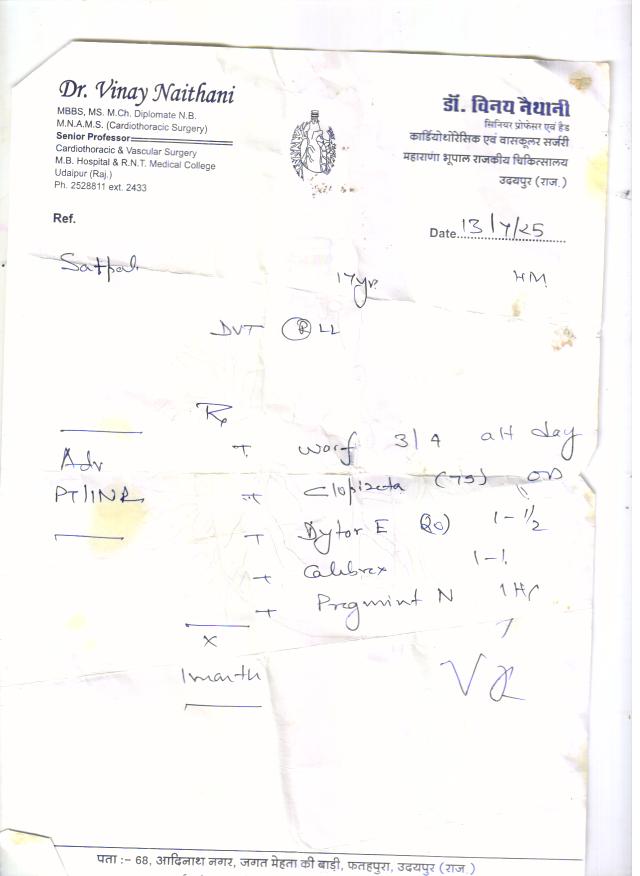 Dr. Vinay Naithani
MBBS, MS. M.Ch. Diplomate N.B.
M.N.A.M.S. (Cardiothoracic Surgery)
Senior Professor
Cardiothoracic & Vascular Surgery
M.B. Hospital & R.N.T. Medical College
Udaipur (Raj.)
Ph. 2528811 ext. 2433
डॉ. विनय नैथानी
सिनियर प्रोफेसर एवं हैड
कार्डियोथोरेसिक एवं वासकूलर सर्जरी
महाराणा भूपाल राजकीय चिकित्सालय
उदयपुर (राज.)
Ref.
Date 13/7/25
Satpal 17yr. HM
DVT Ⓡ LL
Rx
T Warf 3/4 alt day
Adv
PT/INR
T (75) OD
T Dytor E 1-1/2
T
T N
x
1 month
पता :- 68, आदिनाथ नगर, जगत मेहता की बाड़ी, फतहपुरा, उदयपुर (राज.)